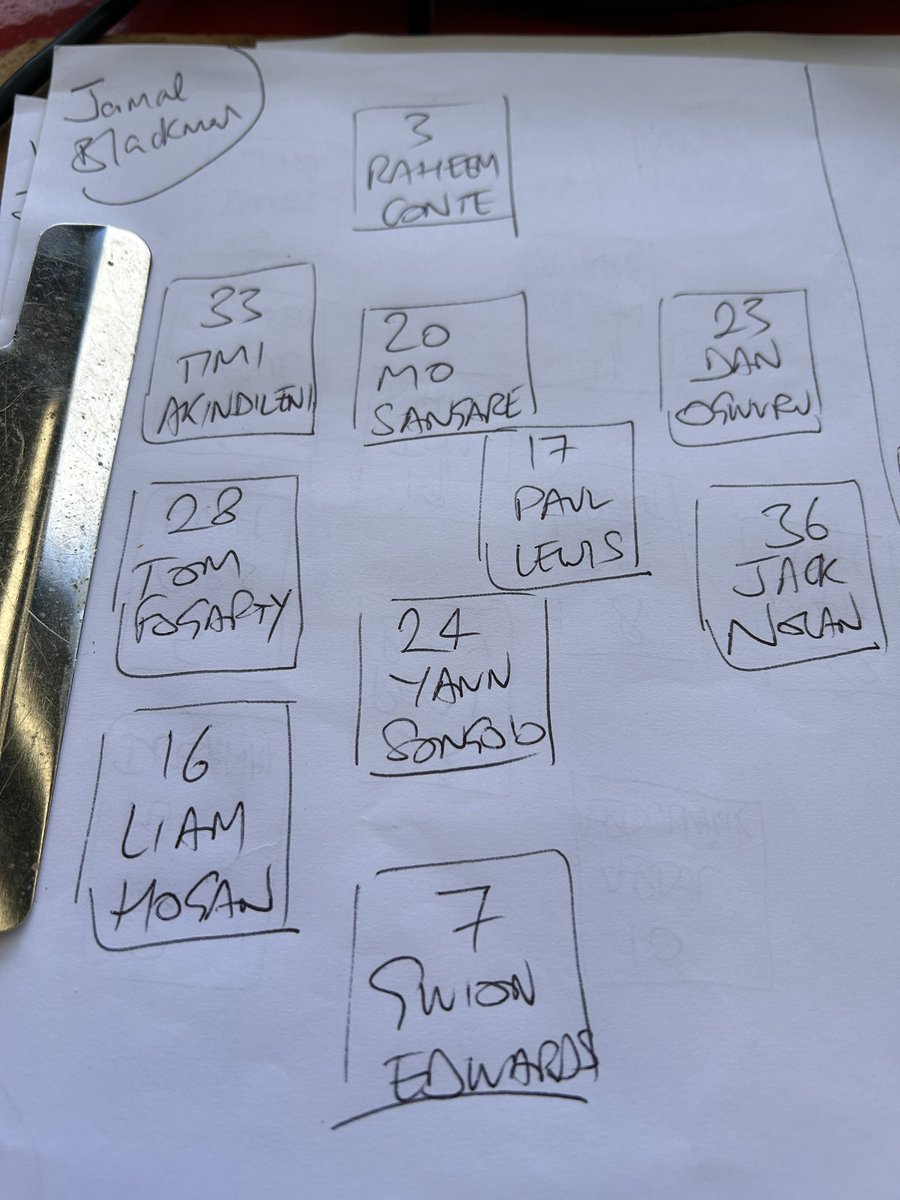 Jamal
Blackman
3
RAHEEM
CONTE
33
TIMI
AKINDILENI
20
MO
SANSARE
23
DAN
17
PAUL
LEWIS
28
TOM
FOGARTY
36
JACK
NOLAN
24
YANN
SONGO'O
16
LIAM
HOGAN
7
GWION
EDWARDS